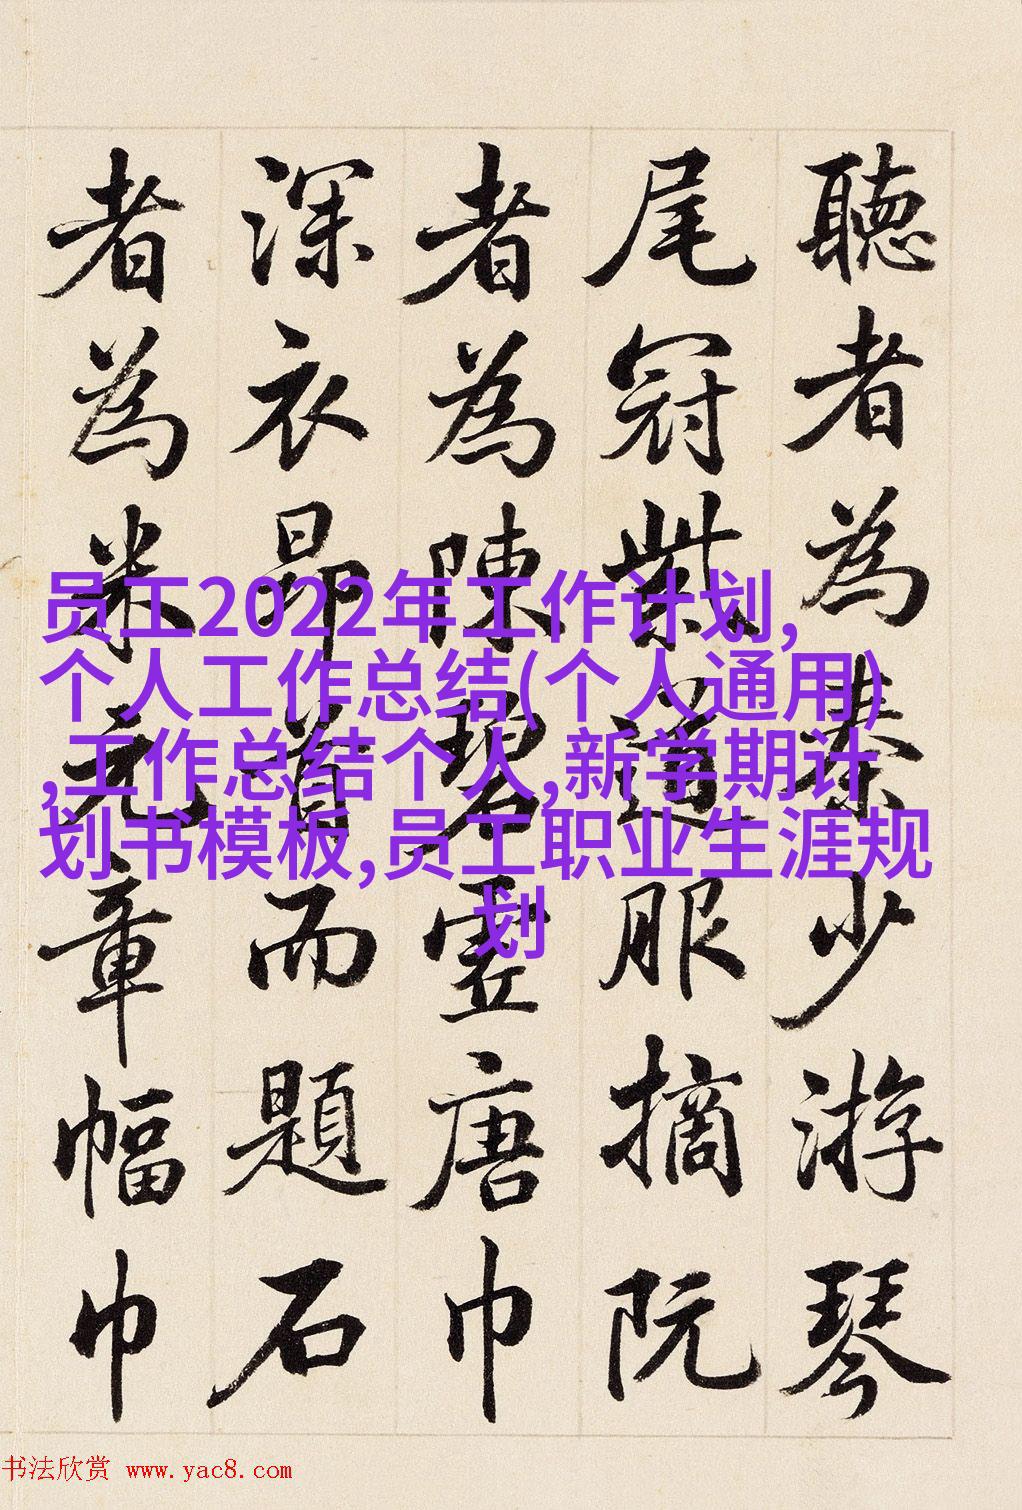 聽者為秦少游琴
尾冠紫道服摘阮
者為陳碧虛唐巾
深衣昂首而題石
者為米元章幅巾
员工2022年工作计划,
个人工作总结(个人通用)
,工作总结个人,新学期计
划书模板,员工职业生涯规
划
书法欣赏 www.yac8.com